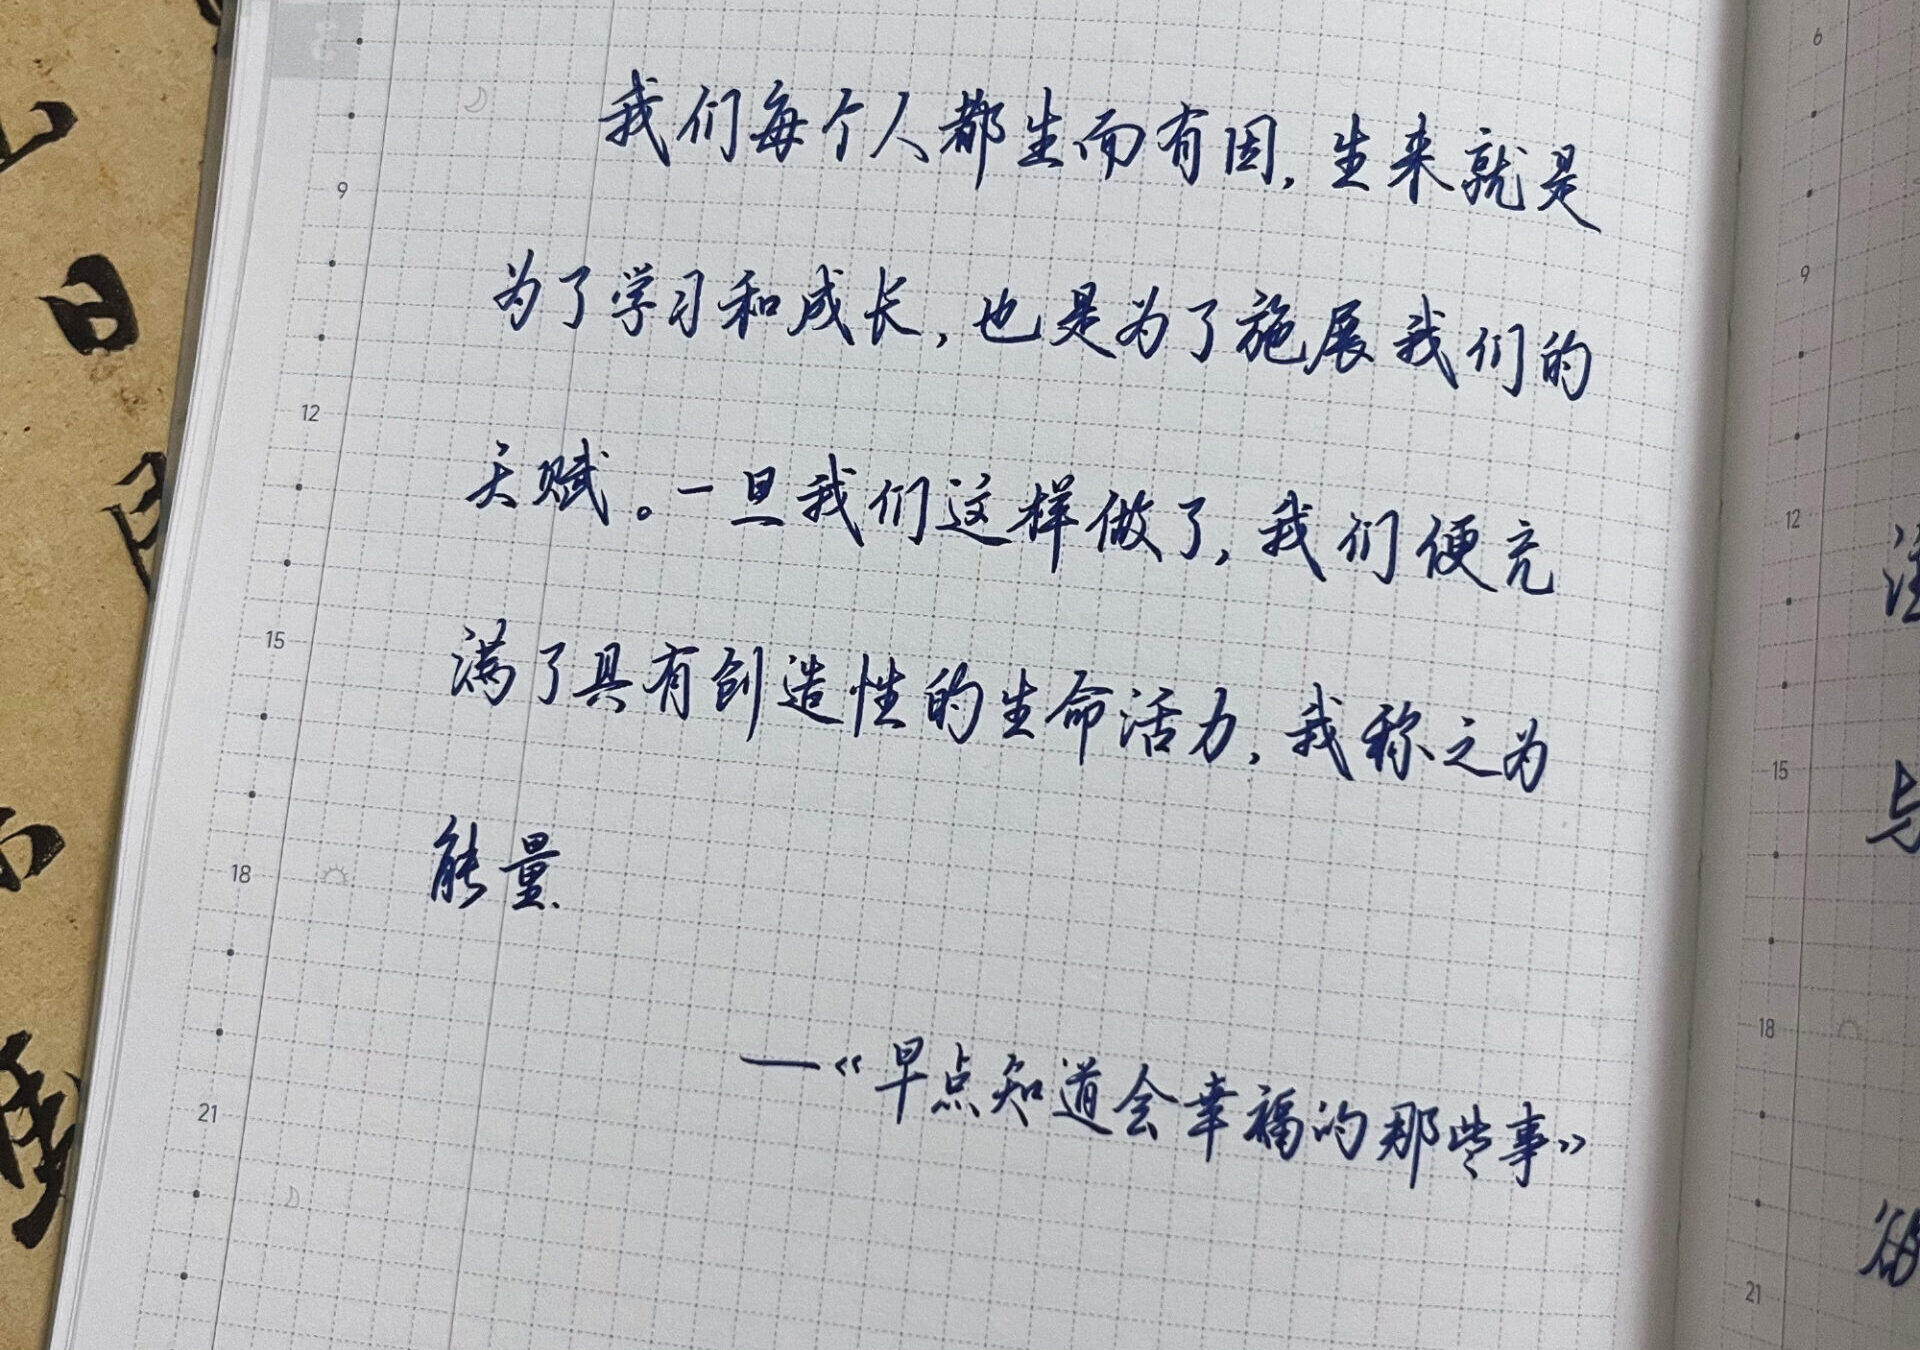 我们每个人都生而有因,生来就是
为了学习和成长,也是为了施展我们的
天赋。一旦我们这样做了,我们便充
满了具有创造性的生命活力,我称之为
能量.
—《早点知道会幸福的那些事》
9
12
15
18
21
6
9
12
15
18
21
日
与